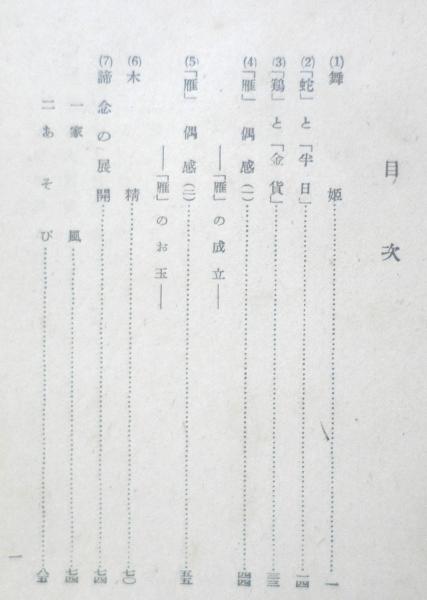 目次
(1)舞姫……一
(2)「蛇」と「半日」……一四
(3)「鶏」と「金貨」……三三
(4)「雁」偶感(一)……四四
――「雁」の成立――
(5)「雁」偶感(二)……五五
――「雁」のお玉――
(6)木精……七〇
(7)諦念の展開……七四
一家風……七四
二あそび……八五
一